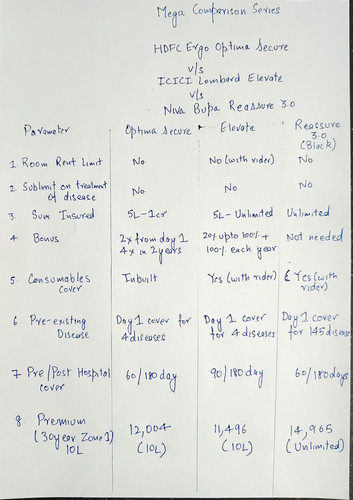 Mega Comparison Series
HDFC Ergo Optima Secure
v/s
ICICI Lombard Elevate
v/s
Niva Bupa Reassure 3.0
Parameter Optima Secure Elevate Reassure 3.0 (Black)
1 Room Rent Limit No No (with rider) No
2 Sublimit on treatment of disease No No No
3 Sum Insured 5L-1cr 5L-Unlimited Unlimited
4 Bonus 2x from day 1 4x in 2 years 20% upto 100% + 100% each year Not needed
5 Consumables cover Inbuilt Yes (with rider) Yes (with rider)
6 Pre-existing Disease Day 1 cover for 4 diseases Day 1 cover for 4 diseases Day 1 cover for 145 disease
7 Pre/Post Hospital cover 60/180 day 90/180 day 60/180 days
8 Premium (30 year Zone 1) 10L 12,004 (10L) 11,496 (10L) 14,965 (Unlimited)